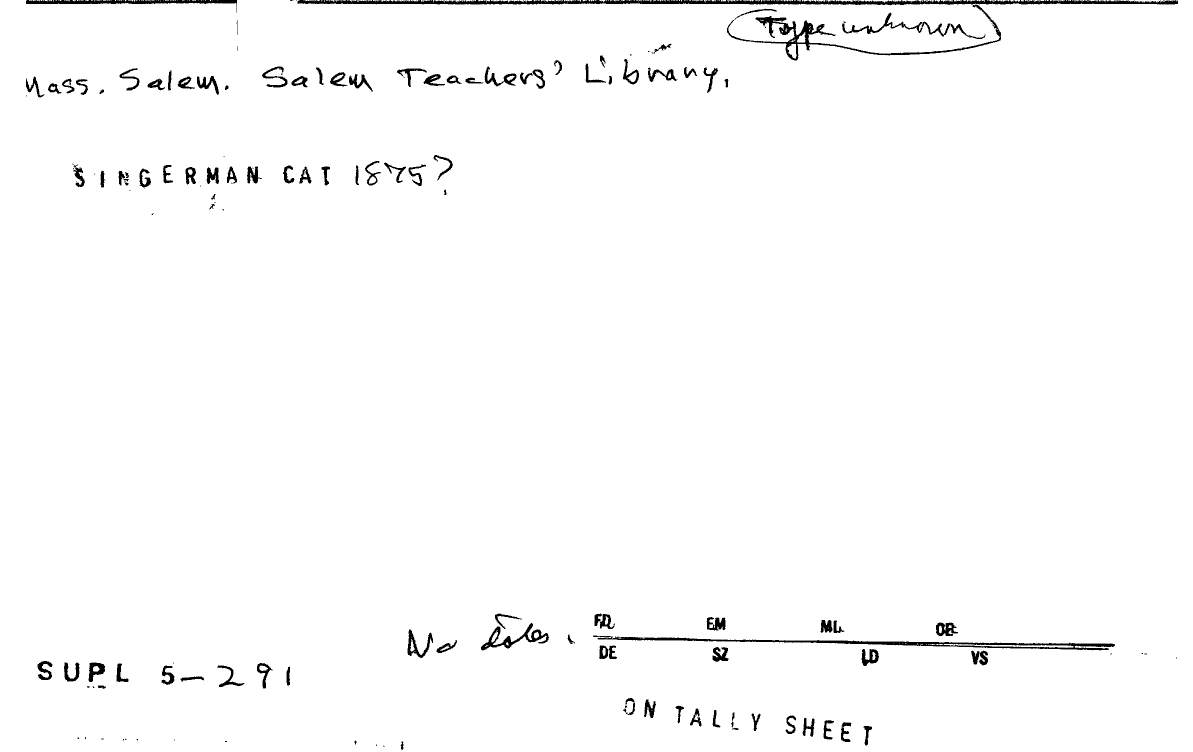 Type unknown
Mass. Salem. Salem Teachers' Library.
SINGERMAN CAT 1875?
No dates. FD EM ML OB
DE SZ LD VS
SUPL 5-291
ON TALLY SHEET